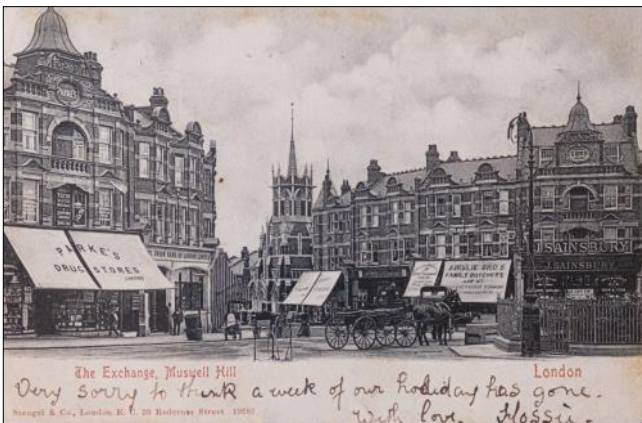 PARKE'S
DRUG STORES
LIMITED
AINSLIE BROS
FAMILY BUTCHERS
J. SAINSBURY
J. SAINSBURY
The Exchange, Muswell Hill
London
Very sorry to think a week of our holiday has gone.
With love.
Stengel & Co., London E. C. 39 Redcross Street